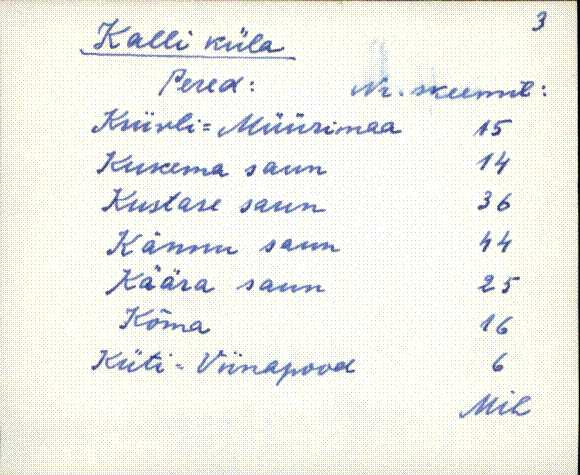 3
Kalli küla
Pered: Nr. skeemil:
Kuivli = Müürimaa 15
Kukema saun 14
Kustase saun 36
Kännu saun 44
Käära saun 25
Kõma 16
Küti = Viinapood 6